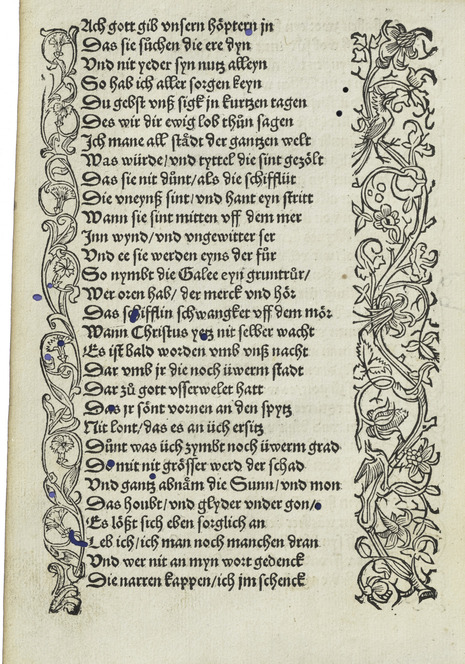 Ach gott gib vnsern höptern jn
Das sie sůchen die ere dyn
Vnd nit yeder syn nutz alleyn
So hab ich aller sorgen keyn
Du gebst vnß sigk jn kurtzen tagen
Des wir dir ewig lob thůn sagen
Jch mane all städt der gantzen welt
Was würde/vnd tyttel die sint gezölt
Das sie nit důnt/als die schifflüt
Die vneynß sint/vnd hant eyn stritt
Wann sie sint mitten vff dem mer
Jnn wynd/vnd vngewitter ser
Vnd ee sie werden eyns der für
So nymbt die Galee eyn gruntrür/
Wer oren hab/der merck vnd hör
Das schifflin schwangket vff dem mör
Wann Christus yetz nit selber wacht
Es ist bald worden vmb vnß nacht
Dar vmb jr die noch üwerm stadt
Dar zů gott vsserwelet hatt
Das jr sönt vornen an den spytz
Nit lont/das es an üch ersitz
Důnt was üch zymbt noch üwerm grad
Do mit nit grösser werd der schad
Vnd gantz abnäm die Sunn/vnd mon
Das houbt/vnd glyder vnder gon/
Es lößt sich eben sorglich an
Leb ich/ich man noch manchen dran
Vnd wer nit an myn wort gedenck
Die narren kappen/ich jm schenck